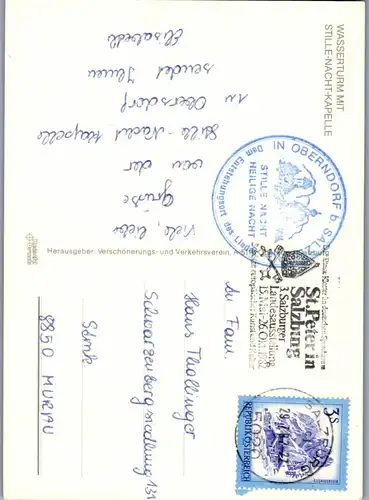 WASSERTURM MIT
STILLE-NACHT-KAPELLE
Viele, liebe
Grüße
von der
Stille-Nacht Kapelle
in Obersdorf
sendet Ihnen
Elisabeth
Herausgeber: Verschönerungs- und Verkehrsverein,
IN OBERNDORF b. SALZ
STILLE NACHT
HEILIGE NACHT
Dem Entstehungsort des Liedes
St. Peter in
Salzburg
3. Salzburger
Landesausstellung
15. Mai - 26. Okt. 1982
SALZBURG
5020
3 S
REPUBLIK ÖSTERREICH
Fam.
Hans Thollinger
Schwarzenbergsiedlung 131
8850 MURAU